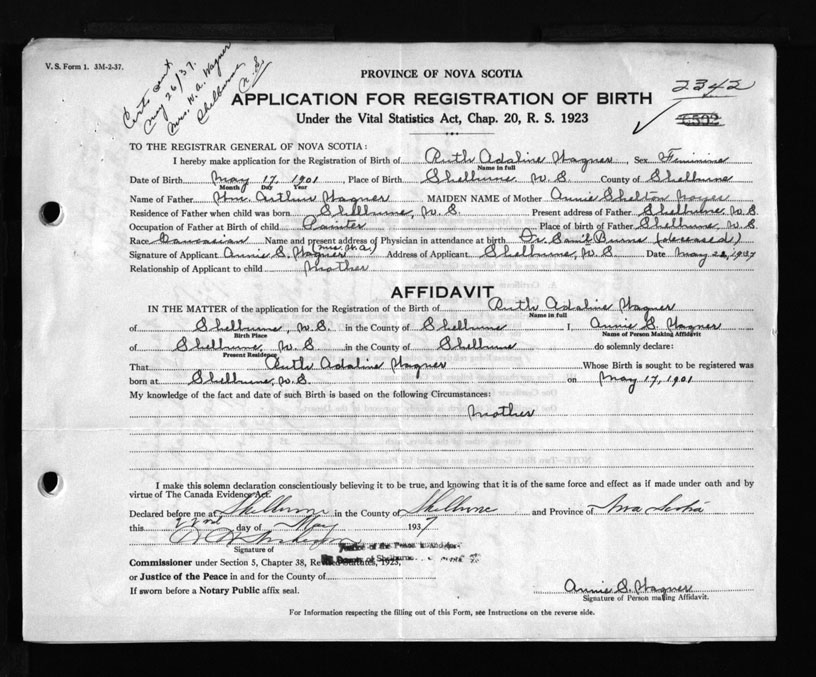 V. S. Form 1. 3M-2-37.
Certs sent
May 26/37.
Mrs. W. A. Wagner
Shelburne
N. S.
PROVINCE OF NOVA SCOTIA
2342
APPLICATION FOR REGISTRATION OF BIRTH
Under the Vital Statistics Act, Chap. 20, R. S. 1923
TO THE REGISTRAR GENERAL OF NOVA SCOTIA:
I hereby make application for the Registration of Birth of Ruth Adaline Wagner, Sex Feminine
Name in full
Date of Birth May 17, 1901, Place of Birth Shelburne. N. S. County of Shelburne
Month Day Year
Name of Father Wm. Arthur Wagner MAIDEN NAME of Mother Annie Shelton
Residence of Father when child was born Shelburne, N. S. Present address of Father Shelburne, N. S.
Occupation of Father at Birth of child Painter Place of birth of Father Shelburne, N. S
Race Caucasian Name and present address of Physician in attendance at birth Dr. Sam'l Burns (deceased)
Signature of Applicant Annie S. Wagner (Mrs. W.A.) Address of Applicant Shelburne, N. S. Date May 22, 1937
Relationship of Applicant to child Mother
AFFIDAVIT
IN THE MATTER of the application for the Registration of the Birth of Ruth Adaline Wagner
Name in full
of Shelburne, N. S. in the County of Shelburne I, Annie S. Wagner
Birth Place Name of Person Making Affidavit
of Shelburne, N. S in the County of Shelburne do solemnly declare:
Present Residence
That Ruth Adaline Wagner Whose Birth is sought to be registered was
born at Shelburne, N. S. on May 17, 1901
My knowledge of the fact and date of such Birth is based on the following Circumstances:
Mother
I make this solemn declaration conscientiously believing it to be true, and knowing that it is of the same force and effect as if made under oath and by
virtue of The Canada Evidence Act.
Declared before me at Shelburne in the County of Shelburne and Province of Nova Scotia
this 22nd day of May 1937
Signature of Justice of the Peace in and for
Commissioner under Section 5, Chapter 38, Revised Statutes, 1923,
County of Shelburne
or Justice of the Peace in and for the County of
If sworn before a Notary Public affix seal.
Annie S. Wagner
Signature of Person making Affidavit.
For Information respecting the filling out of this Form, see Instructions on the reverse side.